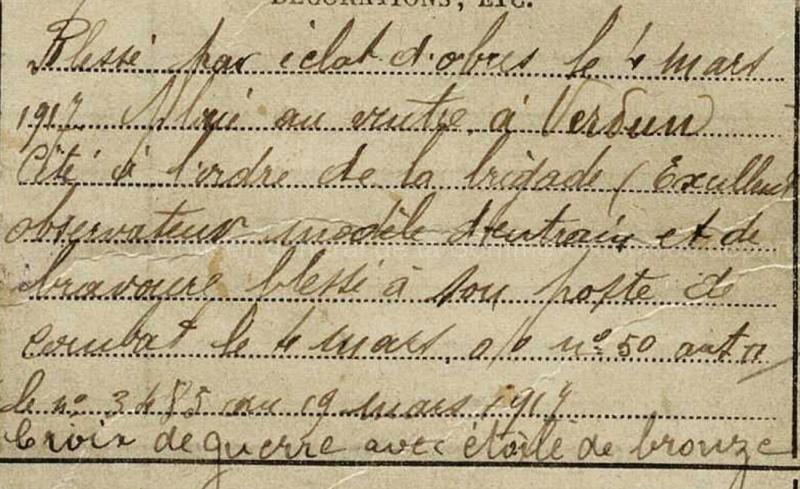 DÉCORATIONS, ETC.
Blessé par éclat d'obus le 4 mars
1917 Plaie au ventre à Verdun
Cité à l'ordre de la brigade (Excellent
observateur modèle d'entrain et de
bravoure blessé à son poste de
combat le 4 mars. o/b n° 50 
le n° 3485 au 19 mars 1917
Croix de guerre avec étoile de bronze